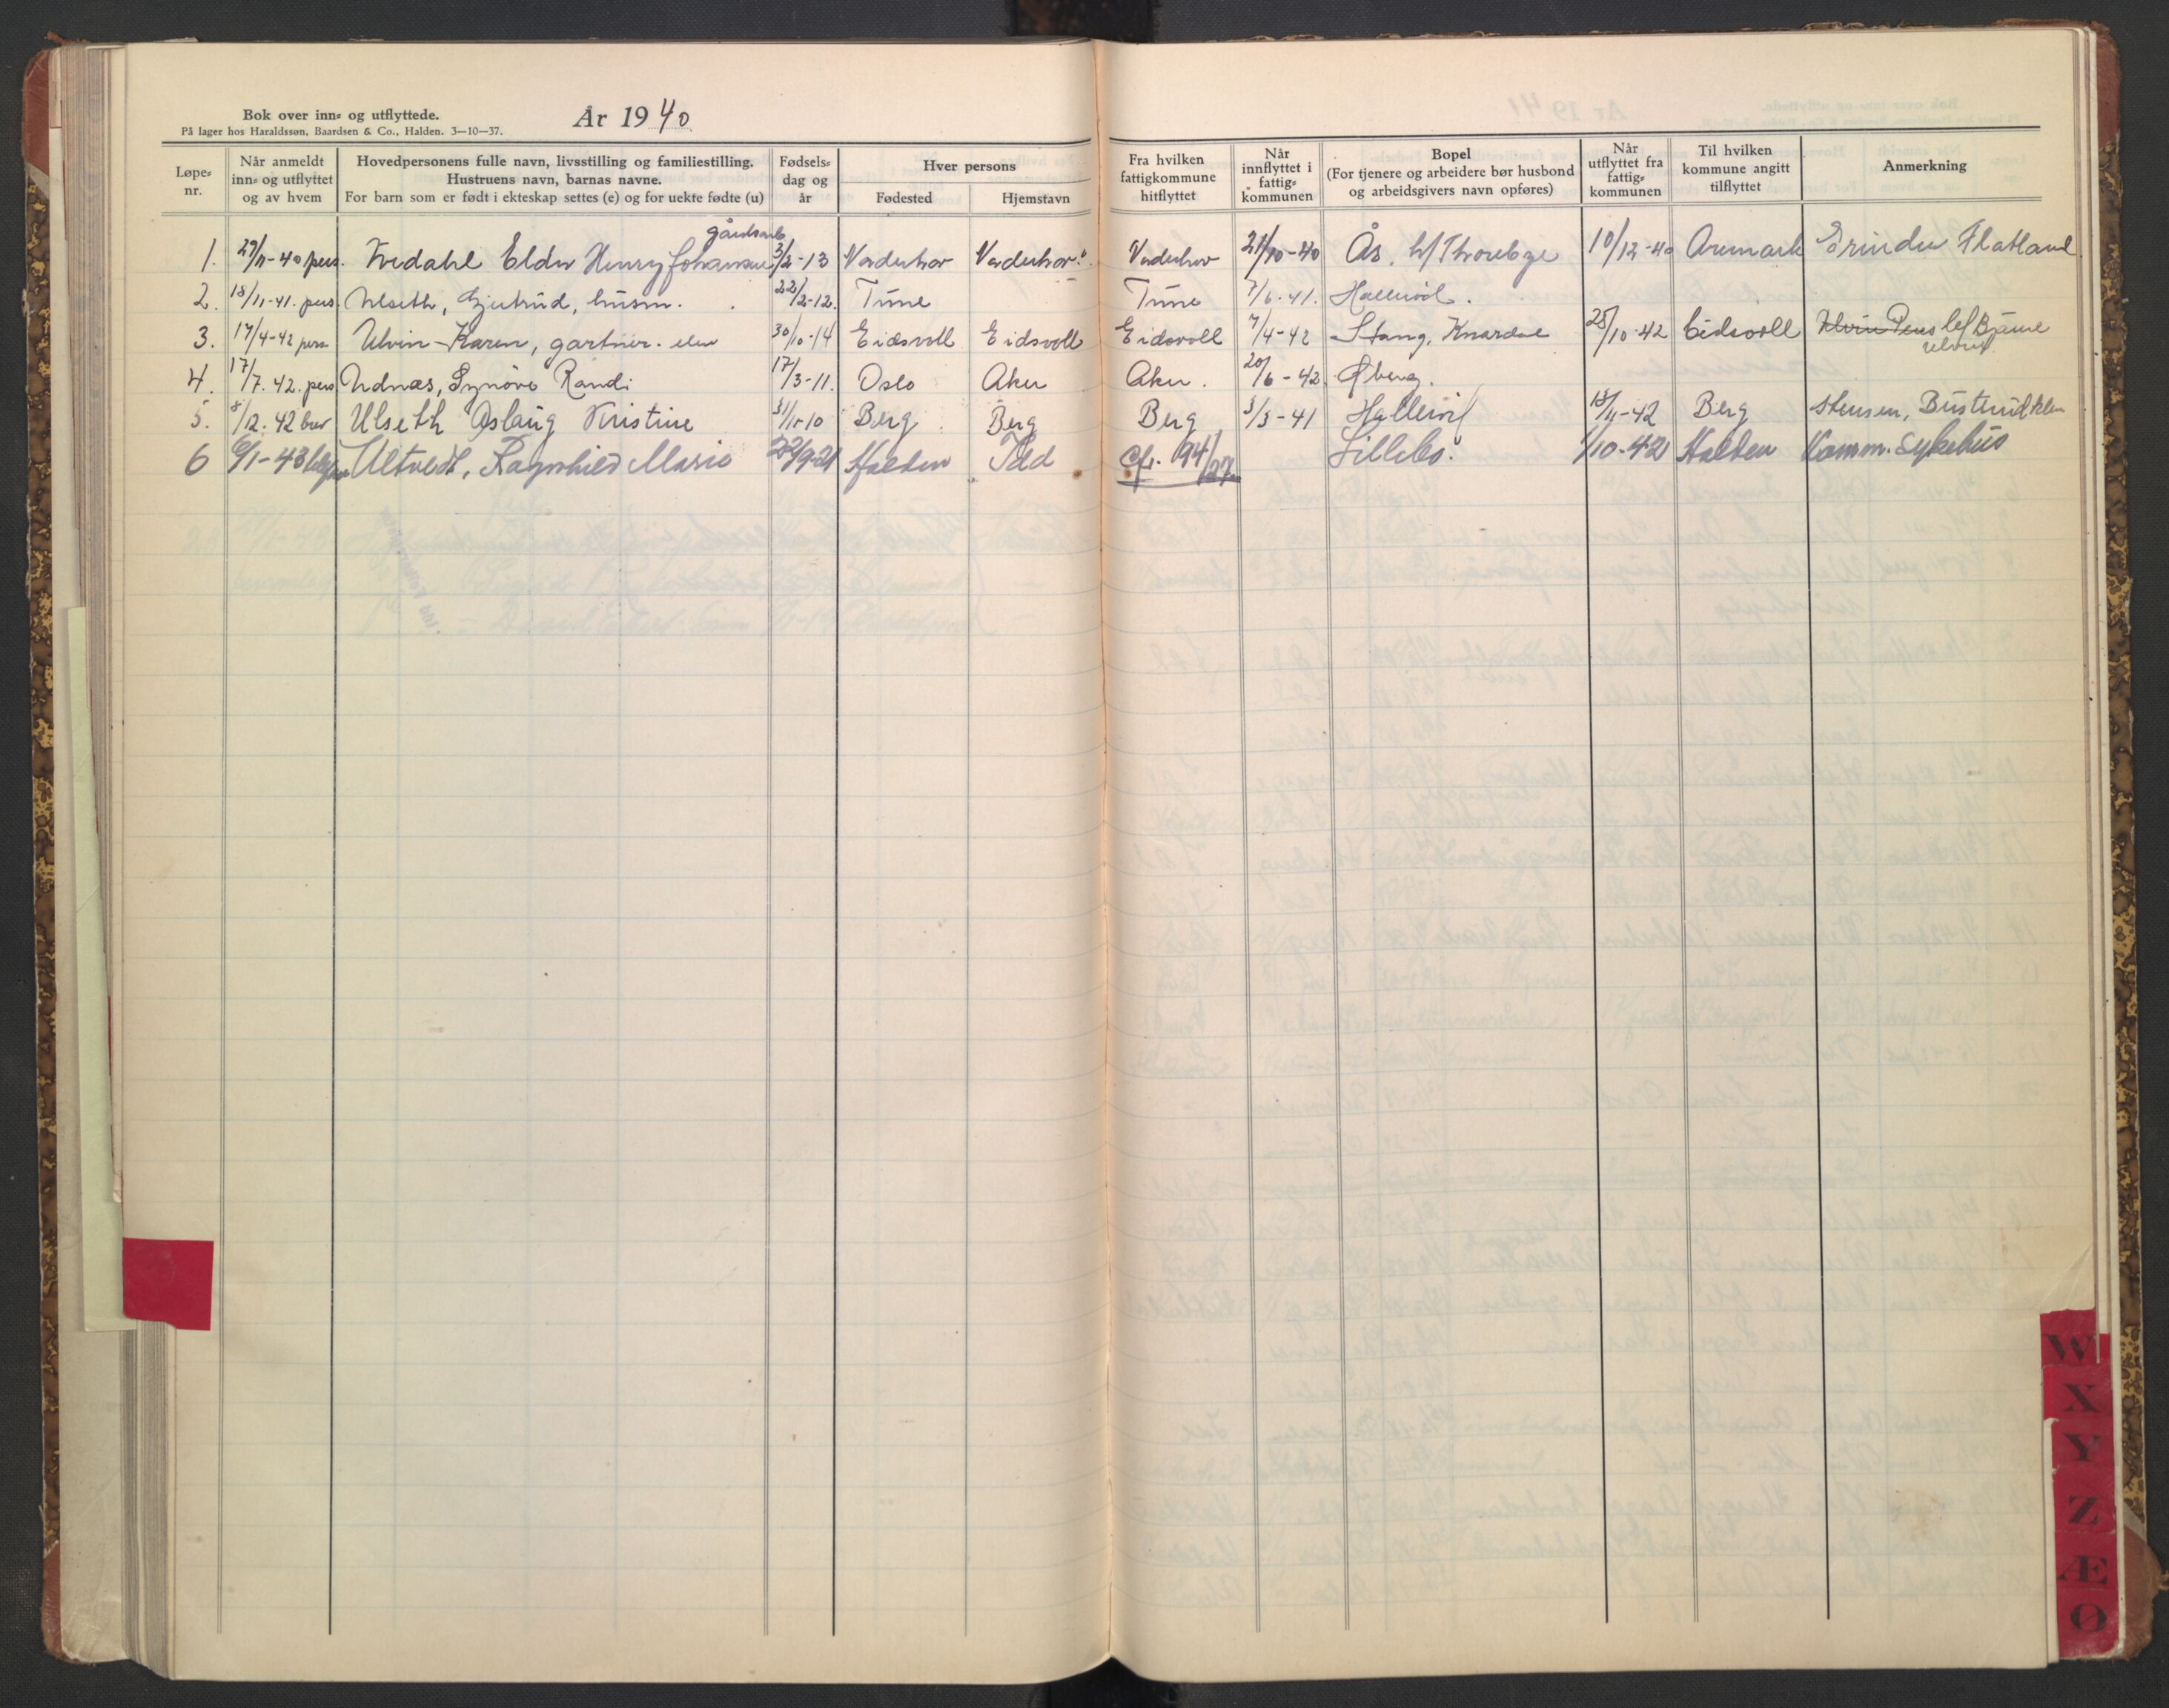 Bok over inn- og utflyttede.
På lager hos Haraldssøn, Baardsen & Co., Halden. 3—10—37.
År 1940
Løpe-nr.
Når anmeldt inn- og utflyttet og av hvem
Hovedpersonens fulle navn, livsstilling og familiestilling.
Hustruens navn, barnas navne.
For barn som er født i ekteskap settes (e) og for uekte fødte (u)
Fødsels-dag og år
Hver persons
Fødested
Hjemstavn
Fra hvilken fattigkommune hitflyttet
Når innflyttet i fattig-kommunen
Bopel
(For tjenere og arbeidere bør husbond og arbeidsgivers navn opføres)
Når utflyttet fra fattig-kommunen
Til hvilken kommune angitt tilflyttet
Anmerkning
gårdsarb
1. 29/11-40 pers. Eldor Henry Johansen 3/2-13 Norderhov Norderhov Norderhov 21/10-40 Ås 10/12-40 Aremark Flatland
2. 18/11-41. pers. Ulseth, Gjertrud, husm. 22/2-12. Tune Tune 7/6-41. Hallerød.
3. 17/4-42 pers Ulvin Karen, gartner. elev 30/10-14 Eidsvoll Eidsvoll Eidsvoll 7/4-42 Stang, Knardal 25/10-42 Eidsvoll Bjarne
Ulvin
4. 17/7. 42. pers Udnæs, Synöve Randi 17/3-11. Oslo Aker Aker. 20/6-42 Øberg.
5. 8/12. 42 brev Ulseth Aslaug Kristine 31/1-10 Berg Berg Berg 3/3-41 Hallerød 18/11-42 Berg Stensen,
6 6/1-43 Ultvedt, Ragnhild Marie 22/9-21 Halden Idd Cfr. 94/27 Lillebo. 1/10-42 Halden Komm. Sykehus
W
X
Y
Z
Æ
Ø